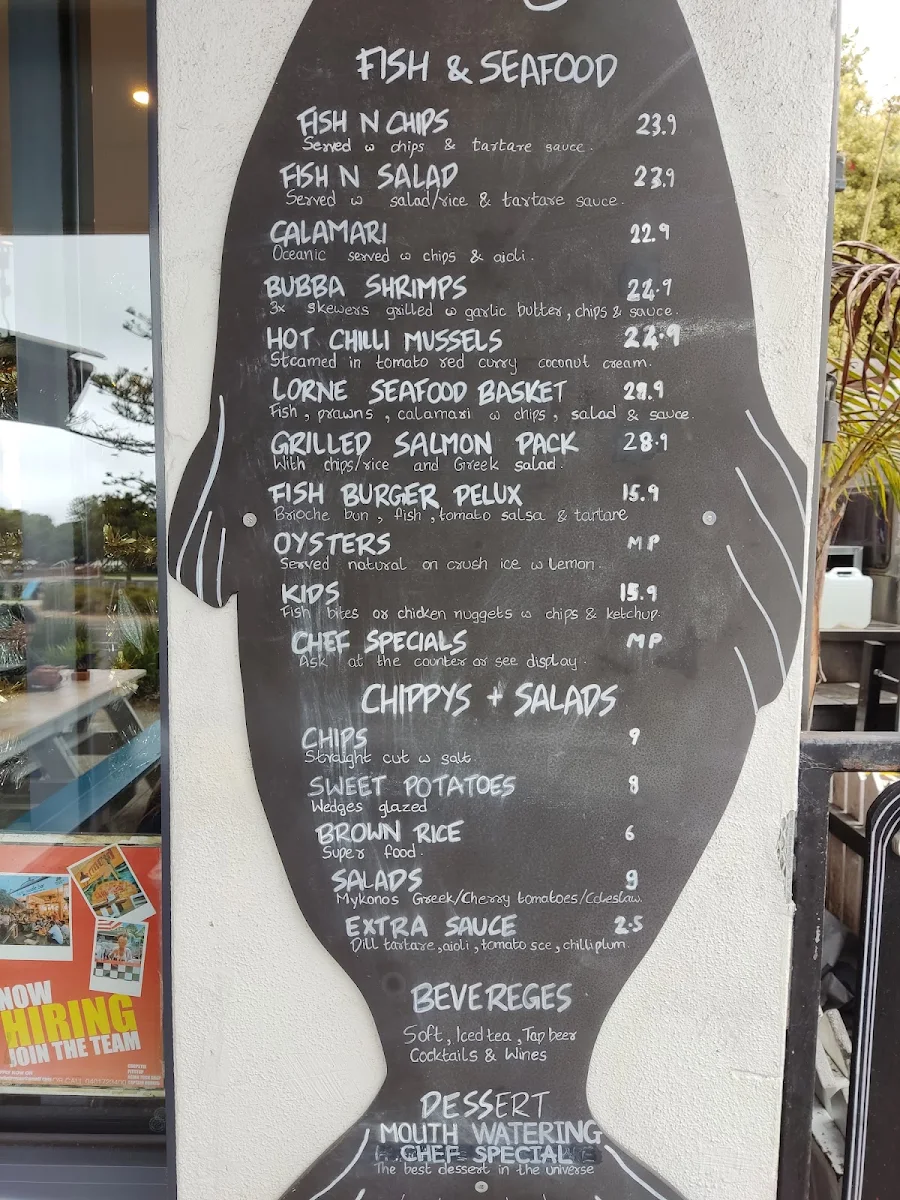 FISH & SEAFOOD
FISH N CHIPS 23.9
Served w chips & tartare sauce.
FISH N SALAD 23.9
Served w salad/rice & tartare sauce.
CALAMARI 22.9
Oceanic served w chips & aioli.
BUBBA SHRIMPS
3x skewers grilled w garlic butter, chips & sauce.
HOT CHILLI MUSSELS
Steamed in tomato red curry coconut cream.
LORNE SEAFOOD BASKET 28.9
Fish, prawns, calamari w chips, salad & sauce.
GRILLED SALMON PACK 28.9
With chips/rice and Greek salad.
FISH BURGER DELUX 15.9
Brioche bun, fish, tomato salsa & tartare
OYSTERS MP
Served natural on crush ice w lemon.
KIDS 15.9
Fish bites or chicken nuggets w chips & ketchup.
CHEF SPECIALS MP
Ask at the counter or see display.
CHIPPYS + SALADS
CHIPS 9
Straight cut w salt
SWEET POTATOES
Wedges glazed
BROWN RICE 6
Super food.
SALADS 9
Mykonos Greek/Cherry tomatoes/Coleslaw.
EXTRA SAUCE 2.5
Dill tartare, aioli, tomato sce, chilli plum.
BEVEREGES
Soft, Iced tea, Tap beer
Cocktails & Wines
DESSERT
MOUTH WATERING
CHEF SPECIAL
The best dessert in the universe
NOW
HIRING
JOIN THE TEAM